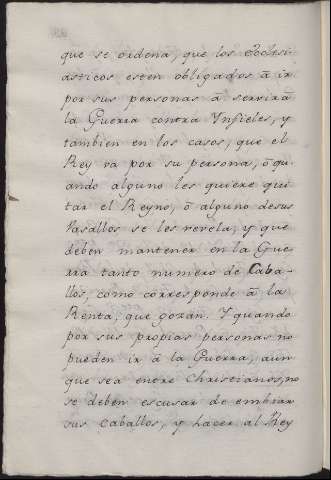 que se ordena, que los Eclesi-
ásticos estèn obligados à ir
por sus personas à servir à
la Guerra contra Ynfieles, y
tambien en los casos, que el
Rey va por su persona, ò qu-
ando alguno les quiere qui
tar el Reyno, ò alguno de sus
Vasallos se les revela, y que
deben mantener en la Gue
rra tanto numero de Caba-
llos, como corresponde à la
Renta, que gozan. Y quando
por sus propias personas no
pueden ir à la Guerra, aun
que sea entre Christianos, no
se deben escusar de embiar
sus caballos, y hacer al Rey